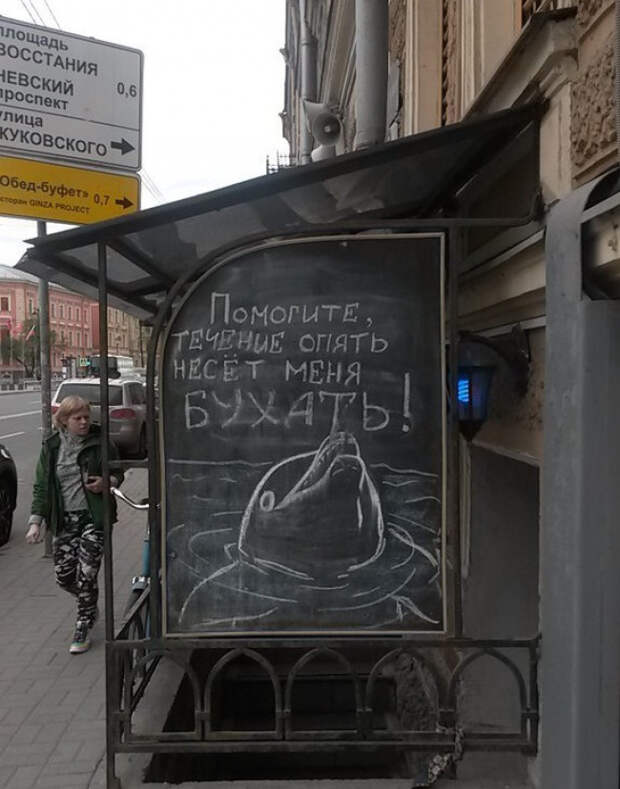 площадь
ВОССТАНИЯ
НЕВСКИЙ 0,6
проспект
улица
ЖУКОВСКОГО
«Обед-буфет» 0,7
ресторан GINZA PROJECT
Помогите,
ТЕЧЕНИЕ ОПЯТЬ
НЕСЁТ МЕНЯ
БУХАТЬ!